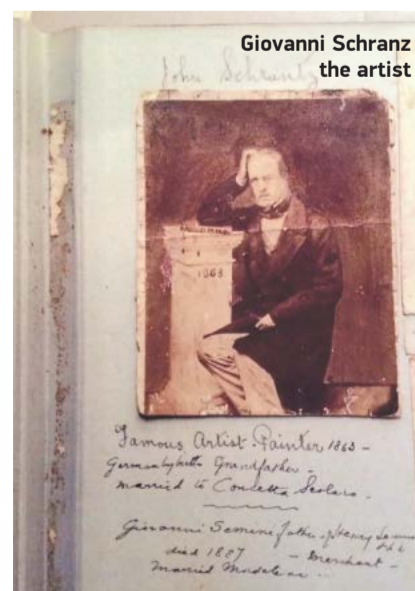 Giovanni Schranz
the artist
John Schrantz
1863
Famous Artist-Painter 1863 -
German by birth Grandfather -
married to Concetta Scolaro -
Giovanni Semini father of Henry
died 1887 - merchant -
married